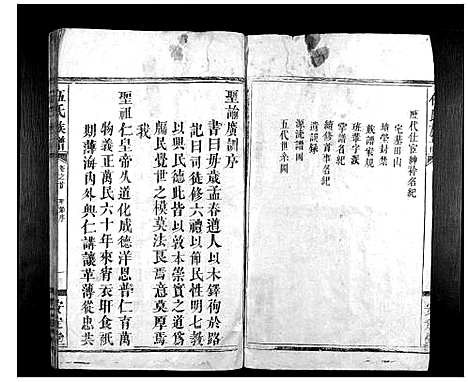 歷代仕宦紳衿名紀
宅基田山
墳塋禁
族譜家規
班輩字派
掌譜名紀
續修首事名紀
遺誤錄
源流譜圖
五代世系圖
聖諭廣訓序
書曰每歲孟春遒人以木鐸徇於路
記曰司徒修六禮以節民性明七教
以興民德此皆以敦本崇實之道爲
牖民覺世之模莫法良焉意莫厚焉
我
聖祖仁皇帝久道化成德洋恩普仁育萬
物義正萬民六十年來宵衣旰食祗
期薄海內外興仁講讓革薄從忠共
伍氏族譜
卷之首
安定堂